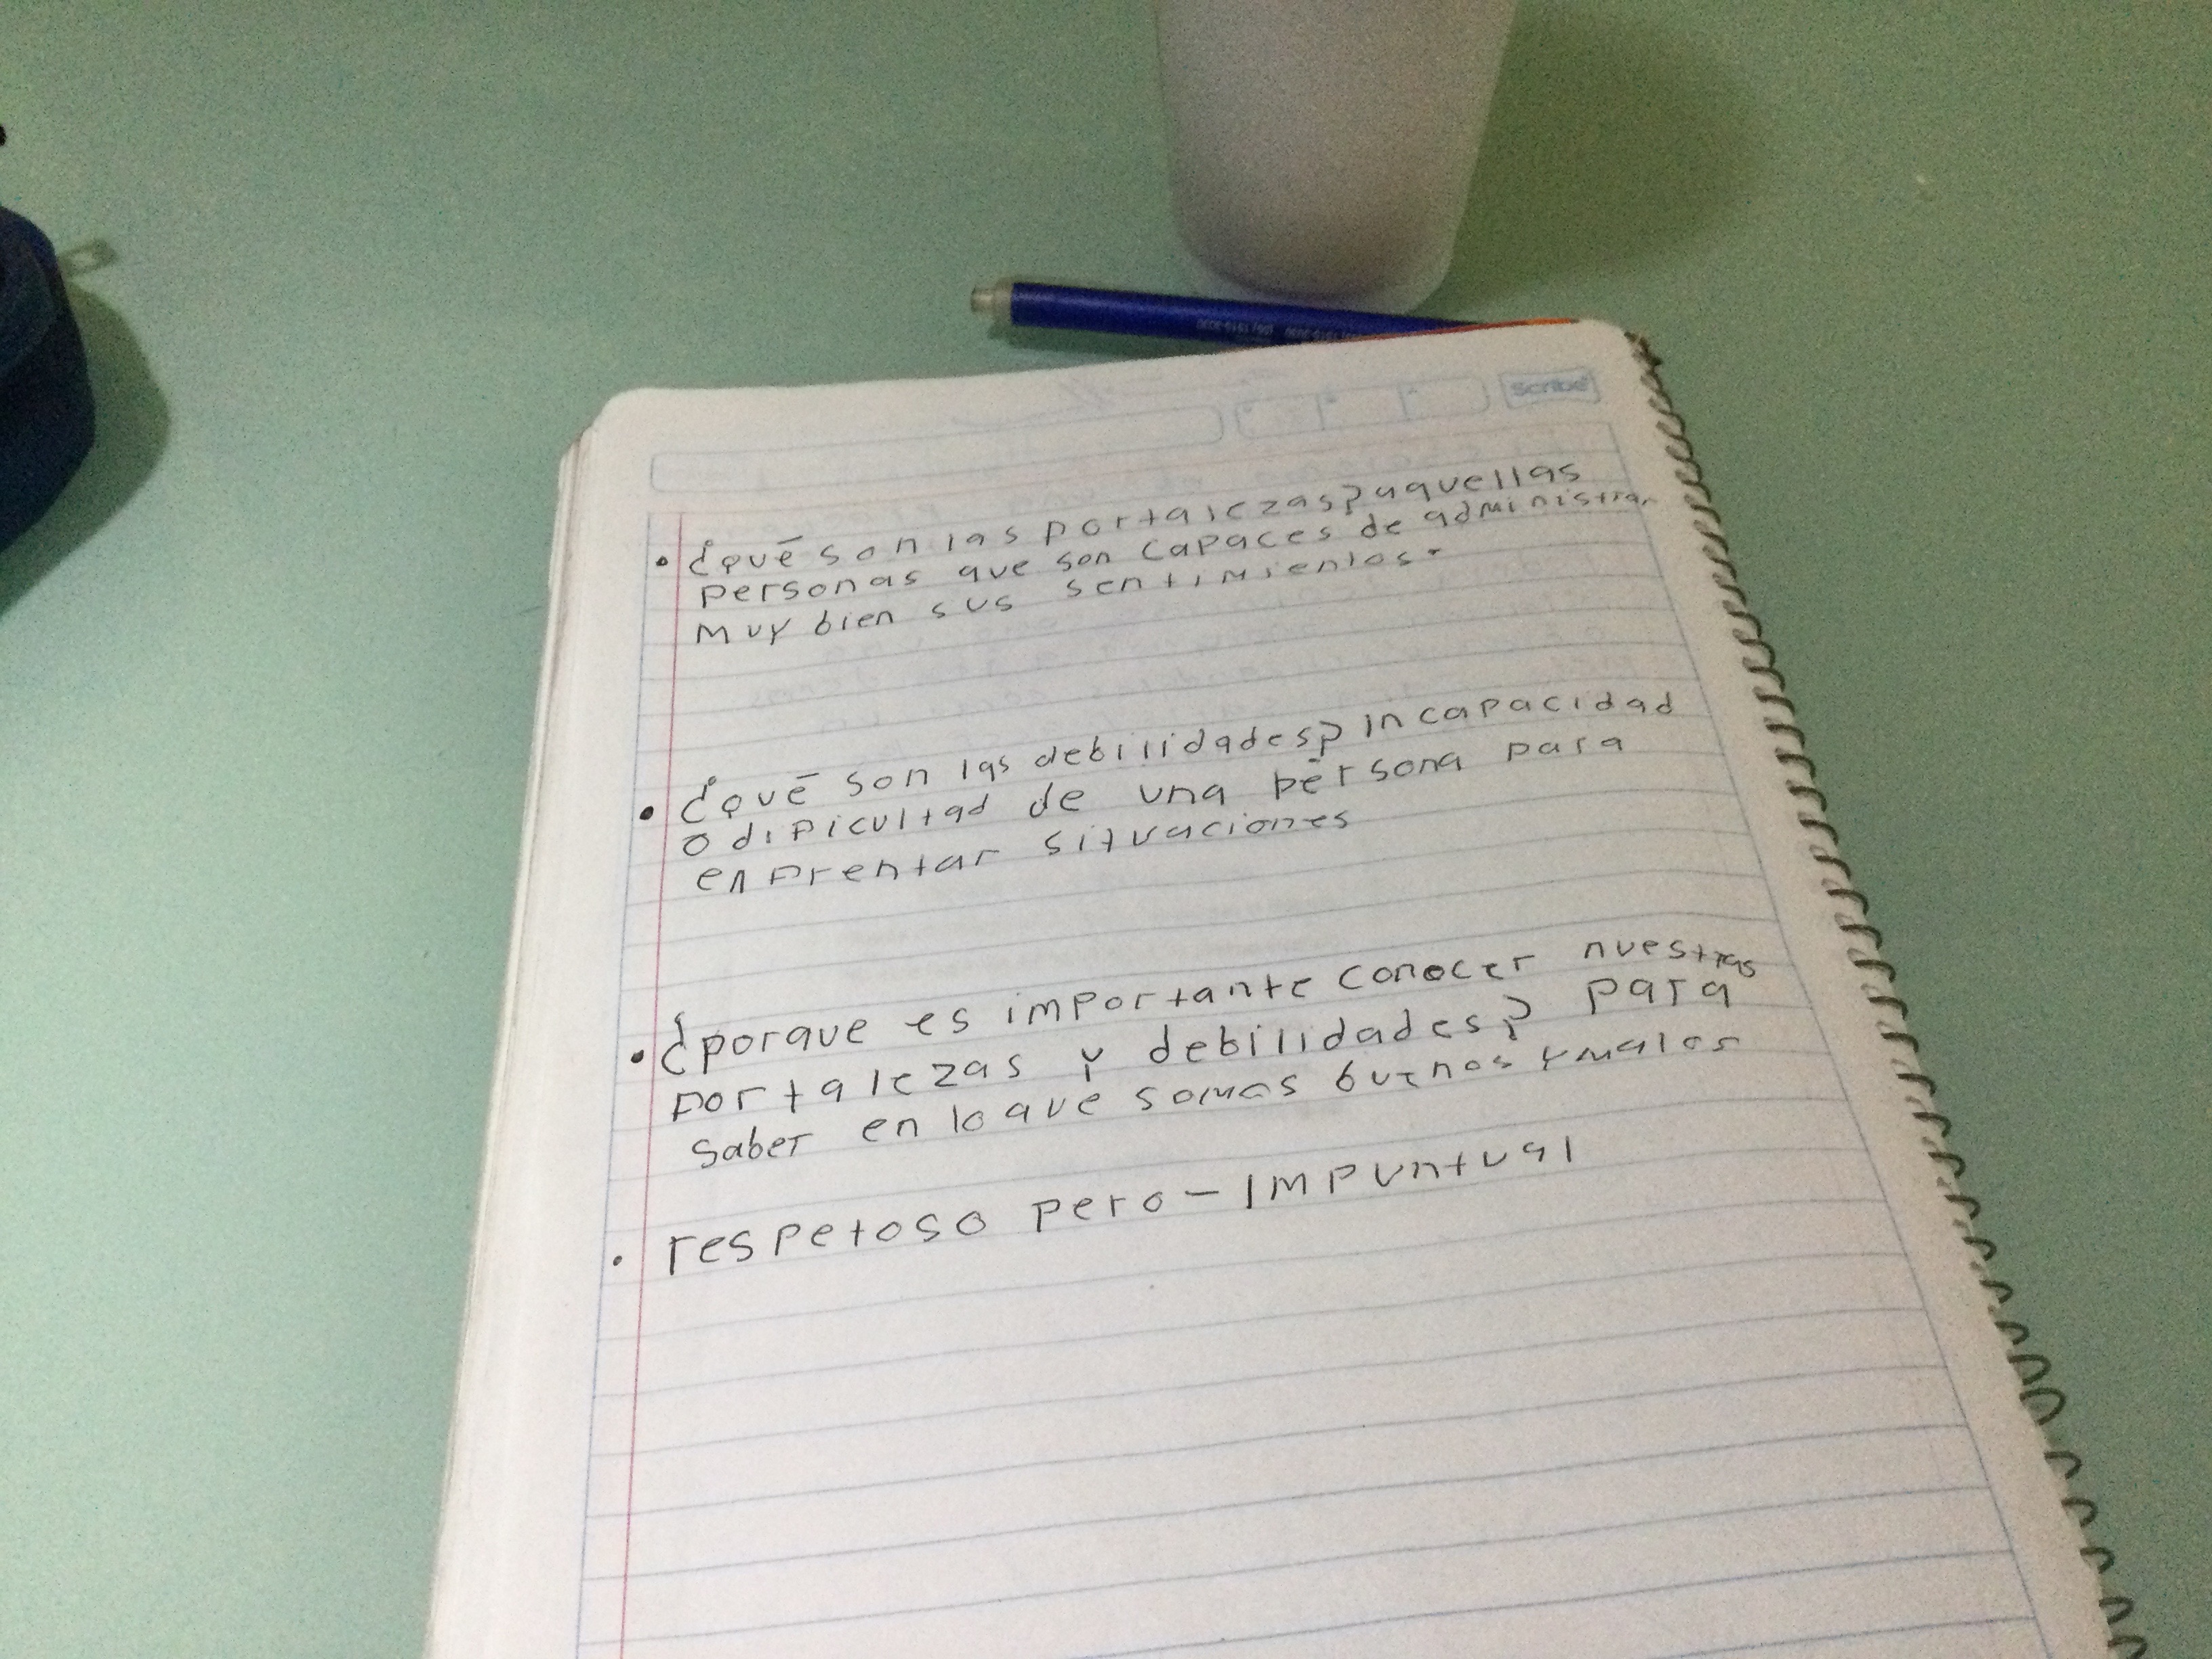 Scribe
• ¿qué son las fortalezas? aquellas
personas que son capaces de administrar
muy bien sus sentimientos.
• ¿qué son las debilidades? incapacidad
o dificultad de una persona para
enfrentar situaciones
• ¿porque es importante conocer nuestras
fortalezas y debilidades? para
saber en lo que somos buenos y malos
• respetoso pero - impuntual